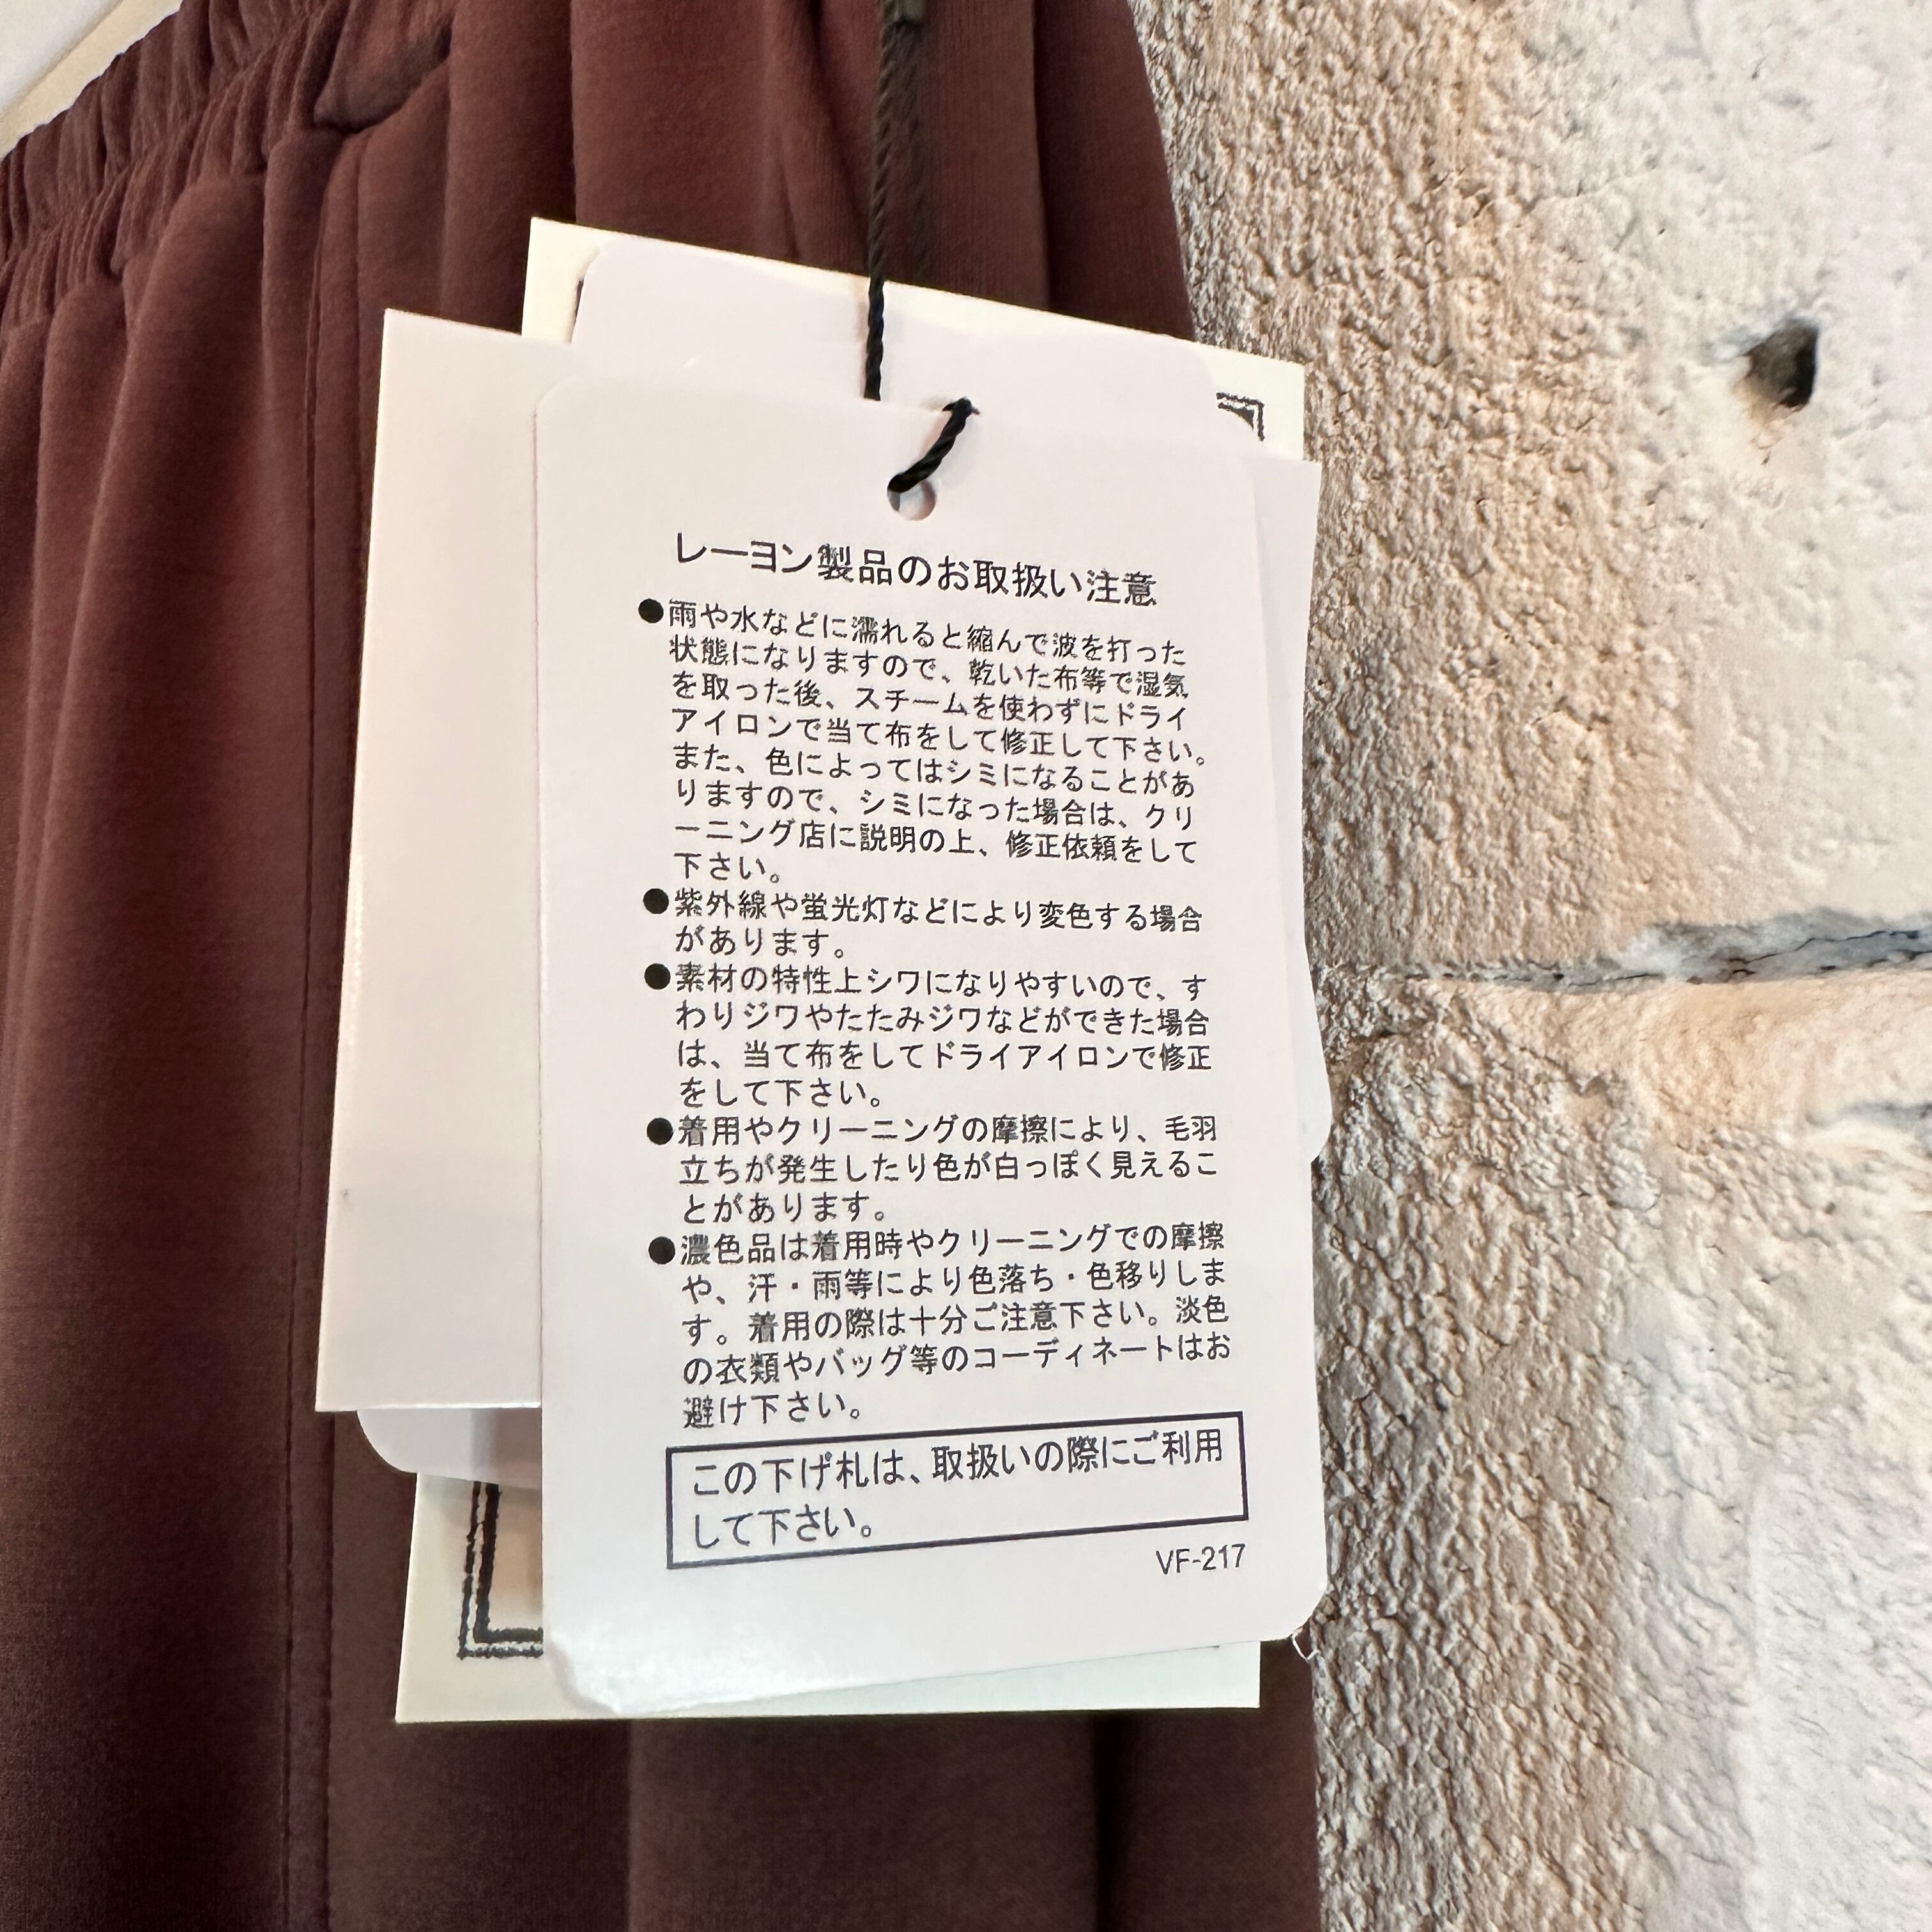 レーヨン製品のお取扱い注意
●雨や水などに濡れると縮んで波を打った
状態になりますので、乾いた布等で湿気
を取った後、スチームを使わずにドライ
アイロンで当て布をして修正して下さい。
また、色によってはシミになることがあ
りますので、シミになった場合は、クリ
ーニング店に説明の上、修正依頼をして
下さい。
●紫外線や蛍光灯などにより変色する場合
があります。
●素材の特性上シワになりやすいので、す
わりジワやたたみジワなどができた場合
は、当て布をしてドライアイロンで修正
をして下さい。
●着用やクリーニングの摩擦により、毛羽
立ちが発生したり色が白っぽく見えるこ
とがあります。
●濃色品は着用時やクリーニングでの摩擦
や、汗・雨等により色落ち・色移りしま
す。着用の際は十分ご注意下さい。淡色
の衣類やバッグ等のコーディネートはお
避け下さい。
この下げ札は、取扱いの際にご利用
して下さい。
VF-217